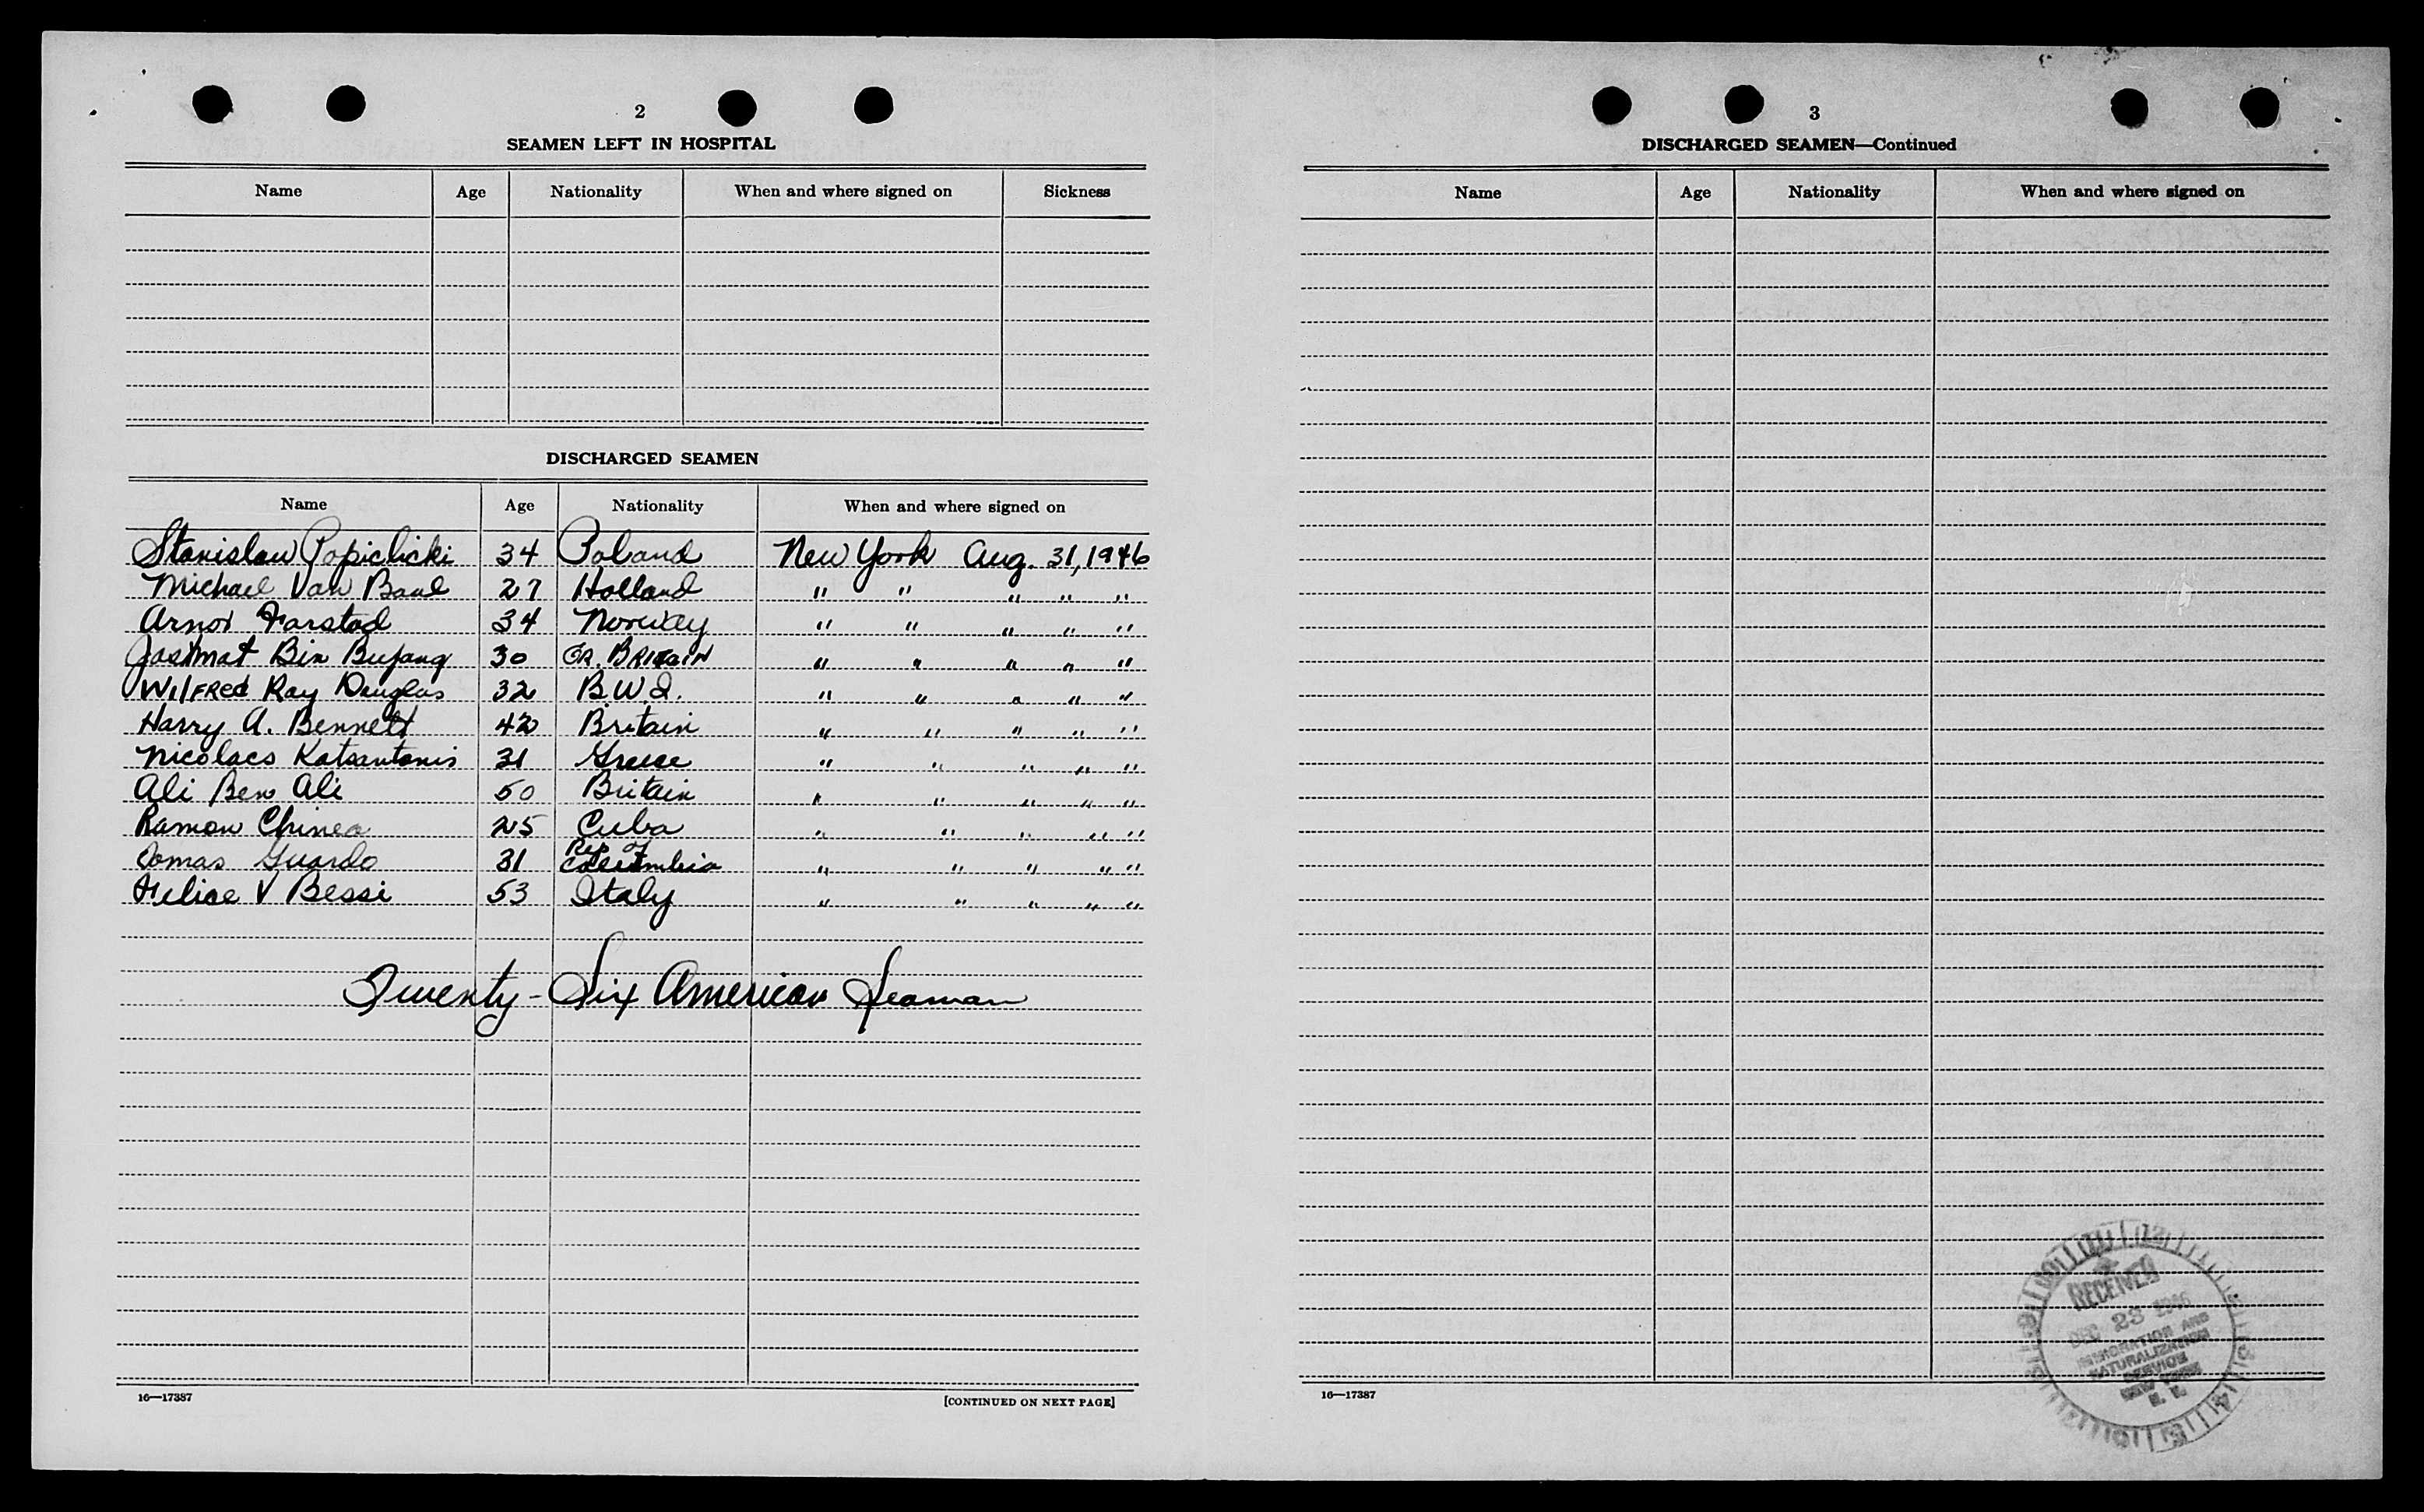 2
SEAMEN LEFT IN HOSPITAL
Name Age Nationality When and where signed on Sickness
DISCHARGED SEAMEN
Name Age Nationality When and where signed on
Stanislaw Popichicki 34 Poland New York Aug. 31, 1946
Michael Van Baal 27 Holland " " " " "
Arnor Farstad 34 Norway " " " " "
Jasimat Bin Bujang 30 GR. BRITAIN " " " " "
Wilfred Ray Douglas 32 B.W.I. " " " " "
Harry A. Bennett 42 Britain " " " " "
Nicolaos Katsantonis 31 Greece " " " " "
Ali Ben Ali 50 Britain " " " " "
Ramon Chinea 25 Cuba " " " " "
Tomas Guardo 31 Rep of Columbia " " " " "
Felice V Bessi 53 Italy " " " " "
Twenty-Six American Seaman
16—17387 [CONTINUED ON NEXT PAGE]
3
DISCHARGED SEAMEN—Continued
Name Age Nationality When and where signed on
RECEIVED
DEC 23 1946
IMMIGRATION AND
NATURALIZATION
SERVICE
NEW YORK
N. Y.
16—17387